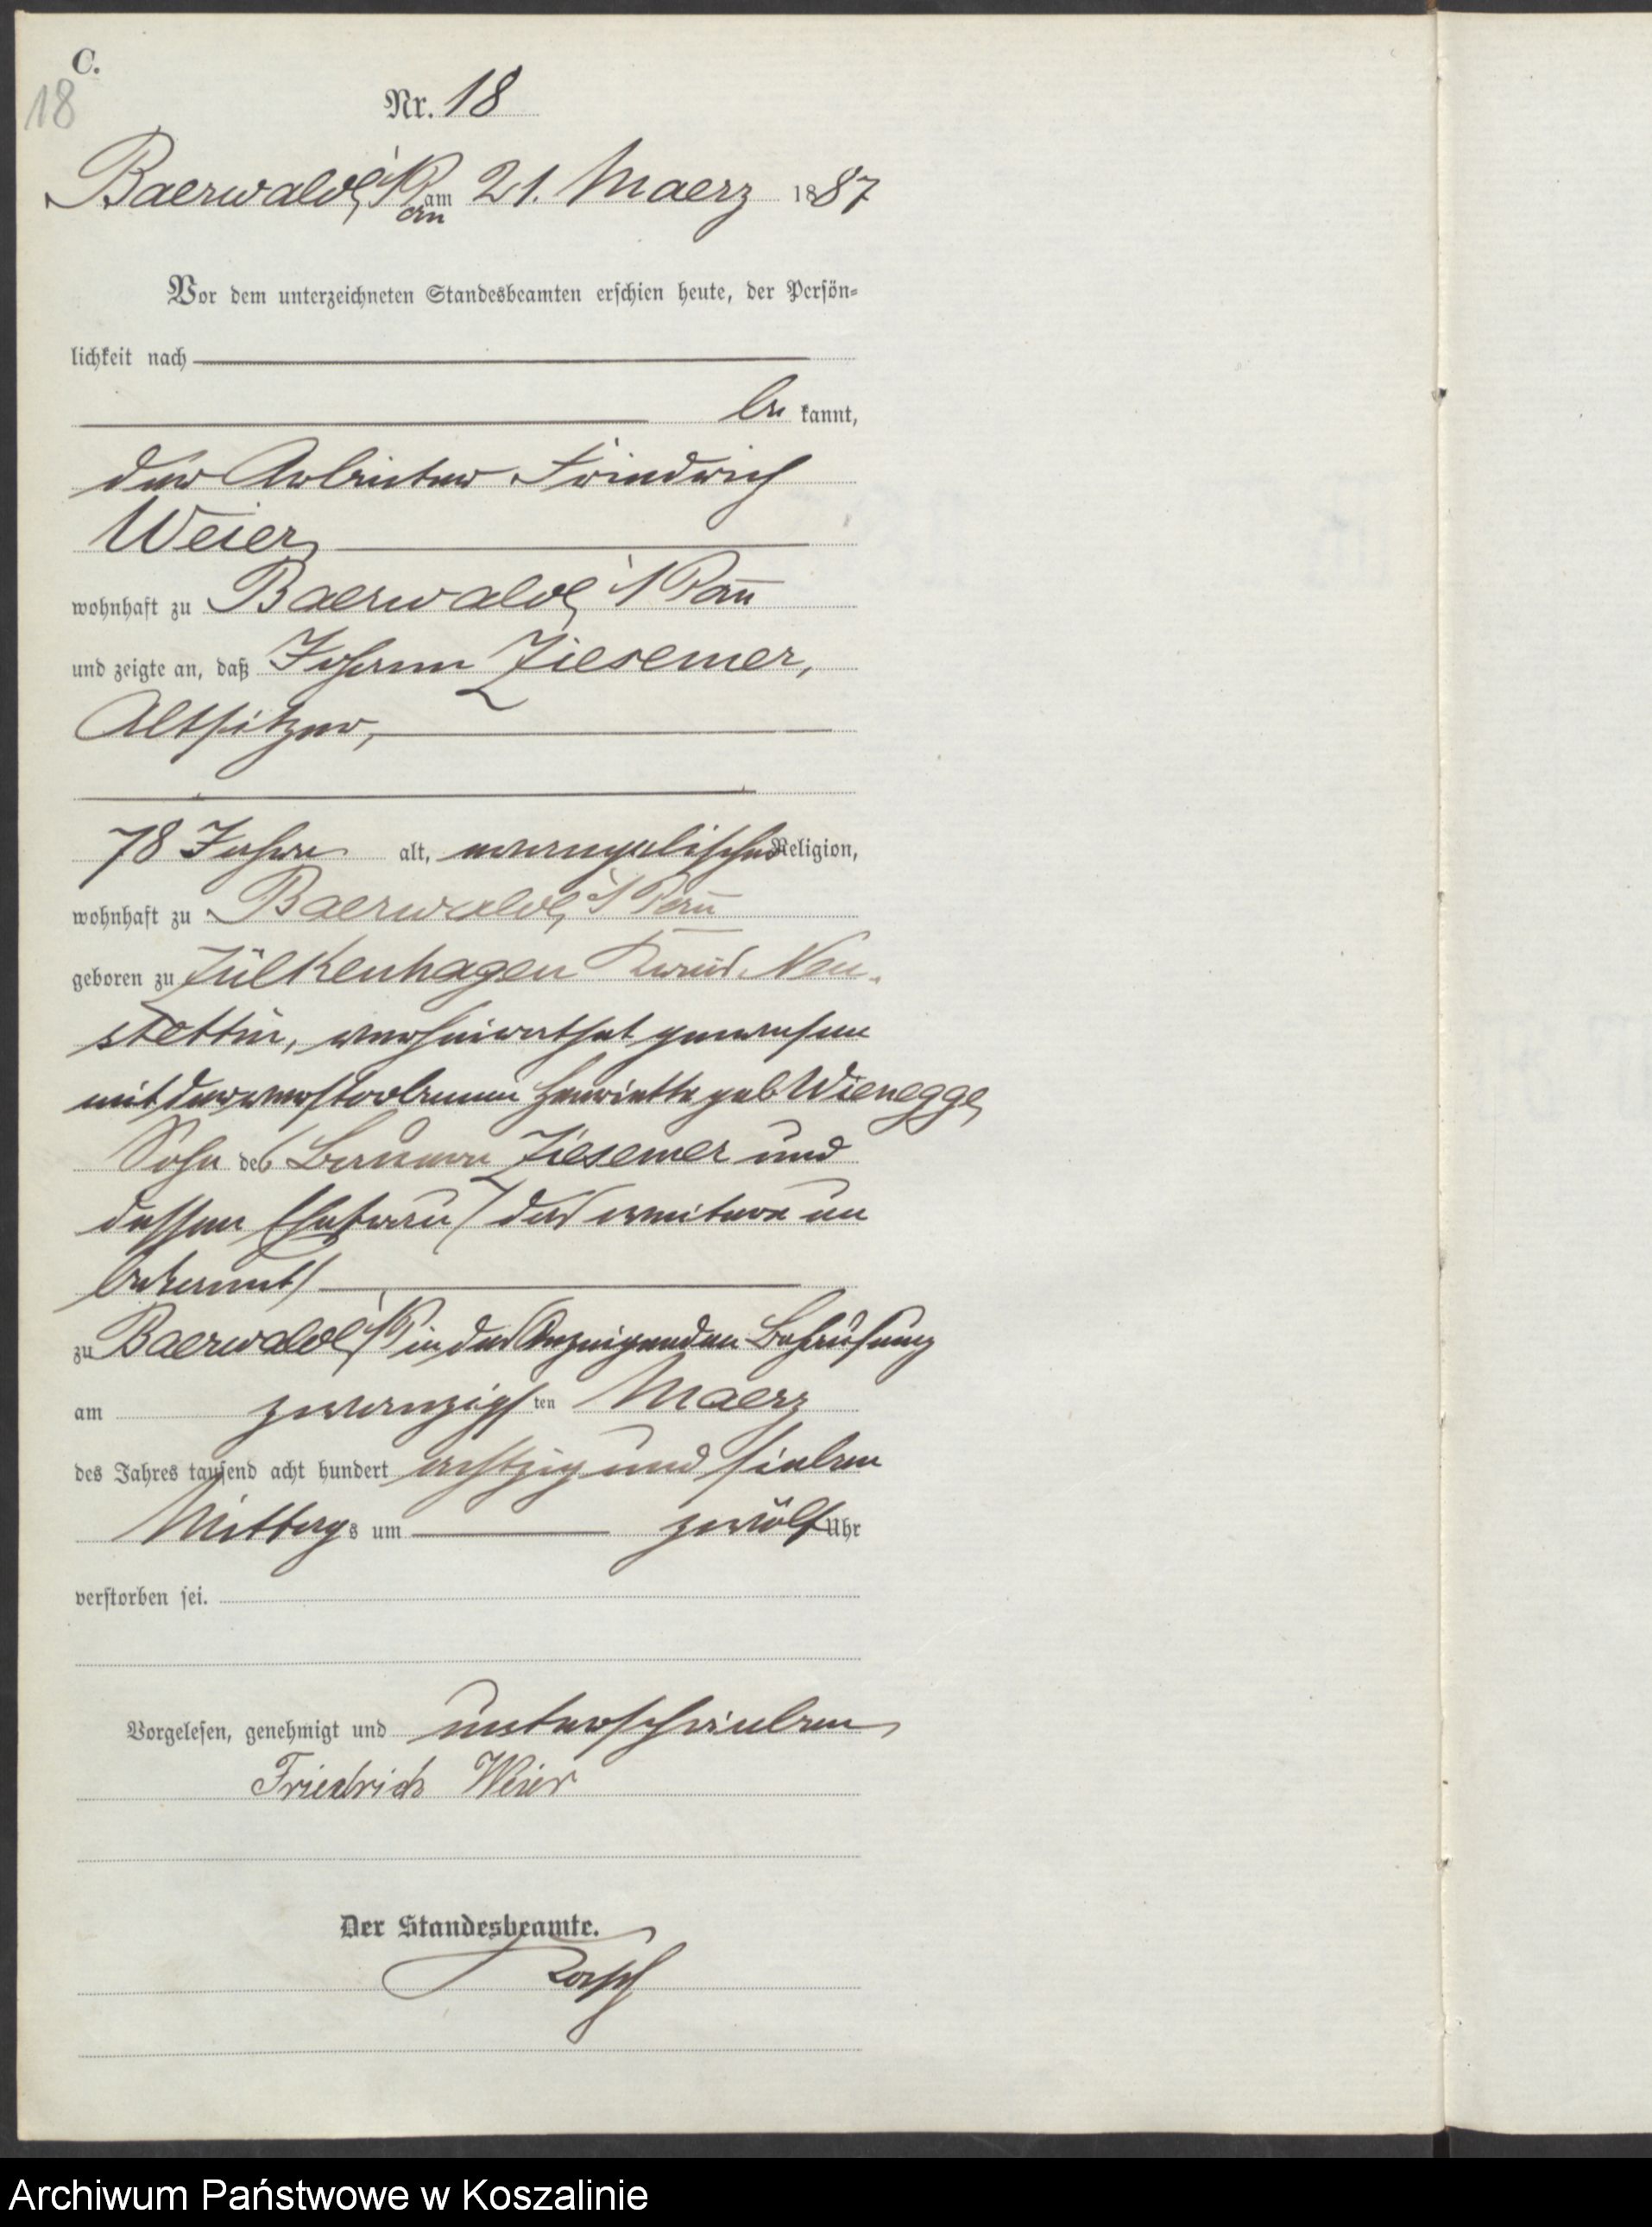 C.
18
Nr. 18
Baerwalde i/Pom am 21. Maerz 1887
Vor dem unterzeichneten Standesbeamten erschien heute, der Persön-
lichkeit nach
be kannt,
der Arbeiter Friedrich
Weier,
wohnhaft zu Baerwalde i/Pom̄
und zeigte an, daß Johann Ziesemer,
Altsitzer,
78 Jahre alt, evangelischer Religion,
wohnhaft zu Baerwalde i/Pom̄
geboren zu Zülkenhagen Kreis Neu-
stettin, verheirathet gewesen
mit der verstorbenen Henriette geb Wienegge,
Sohn des Bauern Ziesemer und
dessen Ehefrau / das weitere un
bekannt/
zu Baerwalde i/P in des Anzeigenden Behausung
am zwanzigs ten Maerz
des Jahres tausend acht hundert achtzig und sieben
Mittags um zwölf Uhr
verstorben sei.
Vorgelesen, genehmigt und unterschrieben
Friedrich Weier
Der Standesbeamte.
Archiwum Państwowe w Koszalinie